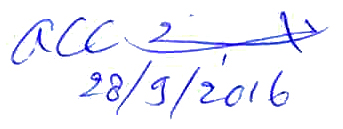 acc
28/9/2016